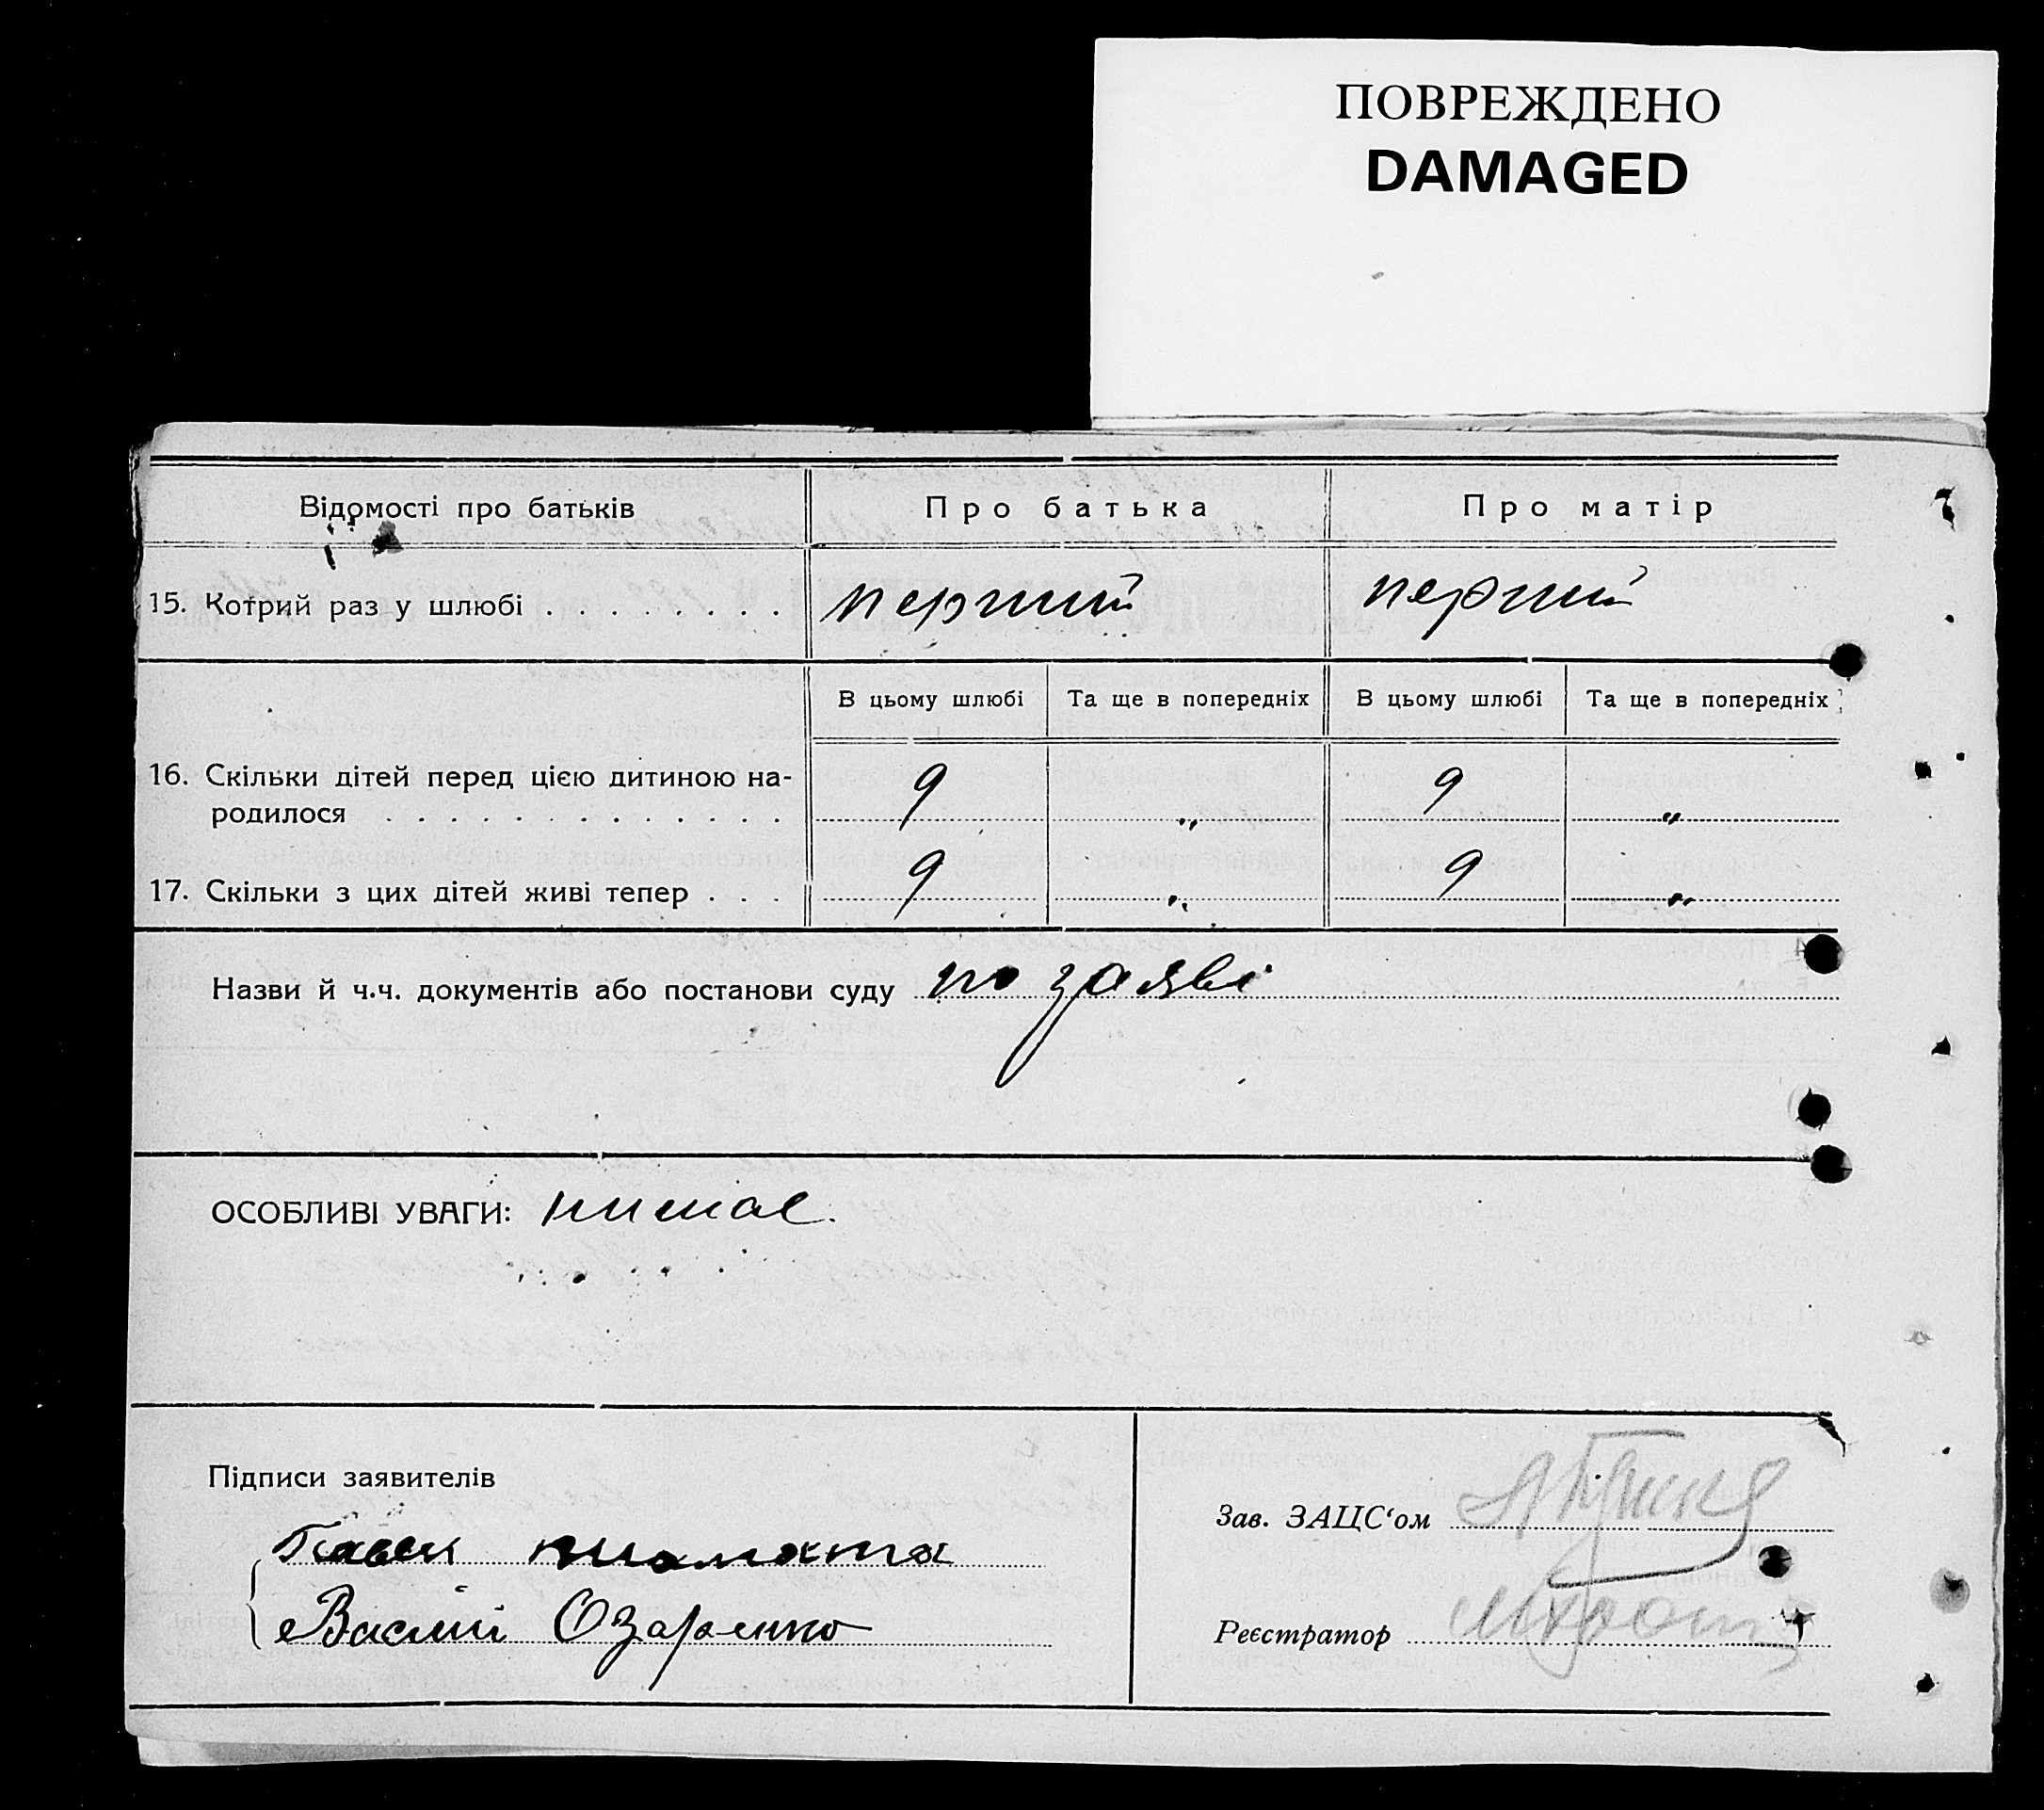 ПОВРЕЖДЕНО
DAMAGED
Відомості про батьків Про батька Про матір
15. Котрий раз у шлюбі . . . . . . . . перший перший
В цьому шлюбі Та ще в попередніх В цьому шлюбі Та ще в попередніх
16. Скільки дітей перед цією дитиною на-
родилося . . . . . . . . . . . . . . 9 „ 9 „
17. Скільки з цих дітей живі тепер . . . 9 „ 9 „
Назви й ч.ч. документів або постанови суду по заяві
ОСОБЛИВІ УВАГИ: немає.
Підписи заявителів
Зав. ЗАЦС‘ом
Василій Озаренко
Реєстратор